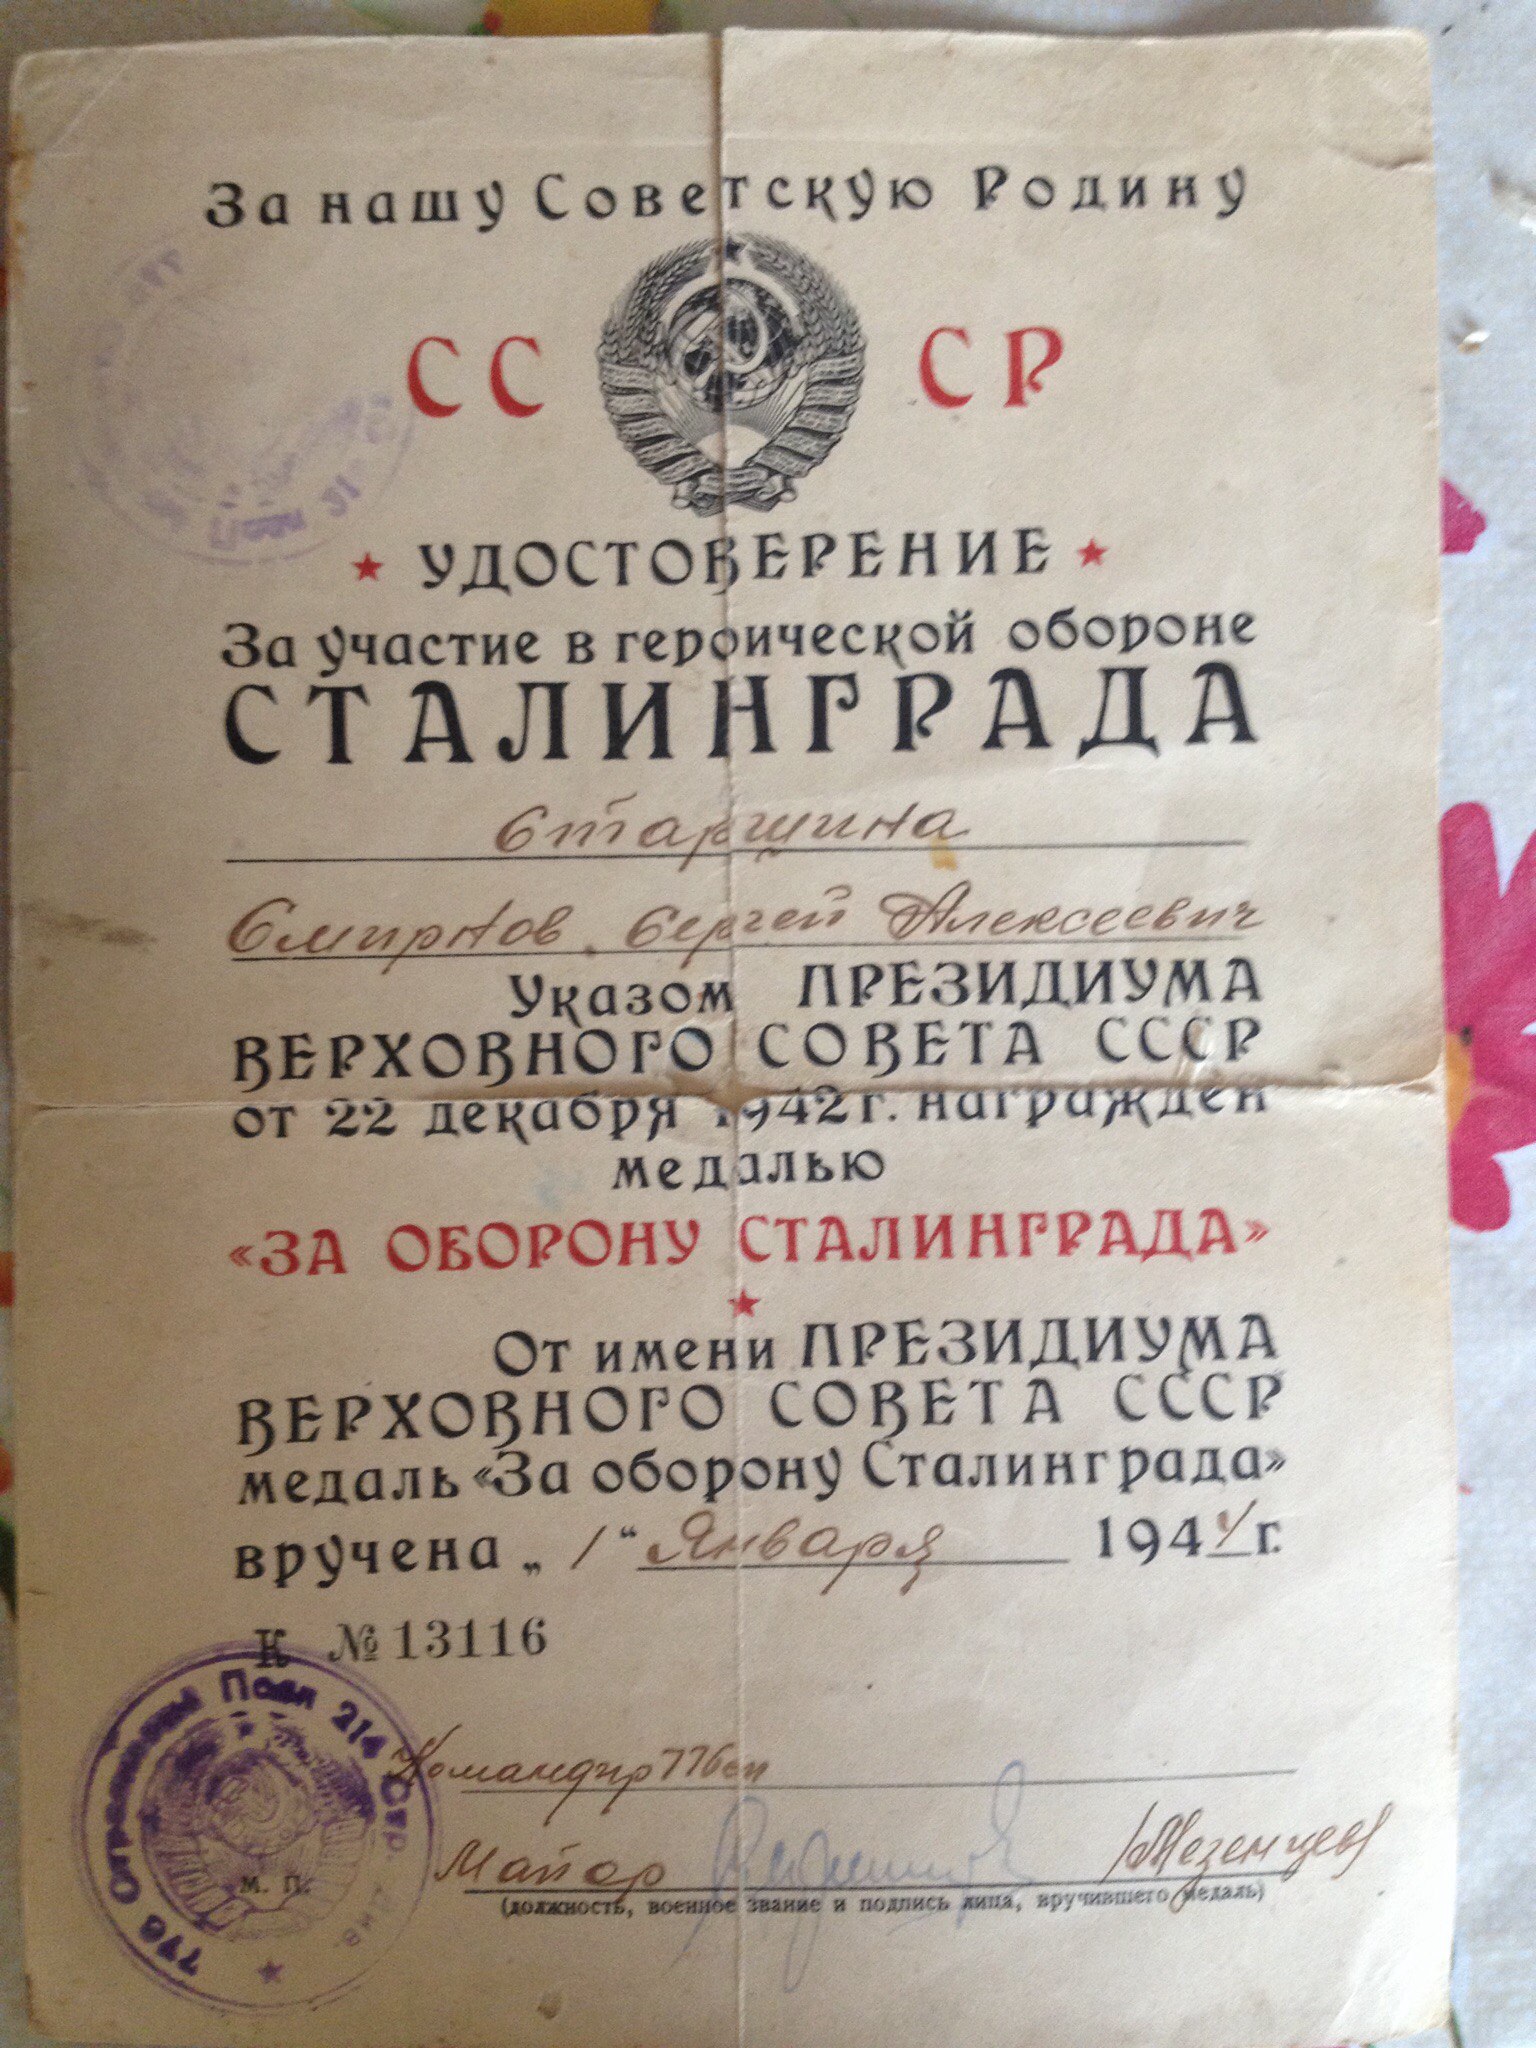 За нашу Советскую Родину
СССР
УДОСТОВЕРЕНИЕ
За участие в героической обороне
СТАЛИНГРАДА
Старшина
Смирнов Сергей Алексеевич
Указом ПРЕЗИДИУМА
ВЕРХОВНОГО СОВЕТА СССР
от 22 декабря 1942 г. награжден
медалью
«ЗА ОБОРОНУ СТАЛИНГРАДА»
От имени ПРЕЗИДИУМА
ВЕРХОВНОГО СОВЕТА СССР
медаль «За оборону Сталинграда»
вручена „1“ Января 1944 г.
К № 13116
776 Полк 214 Стр. Див.
Командир 776 сп
Майор /Мезенцев/
М. П.
(должность, военное звание и подпись лица, вручившего медаль)